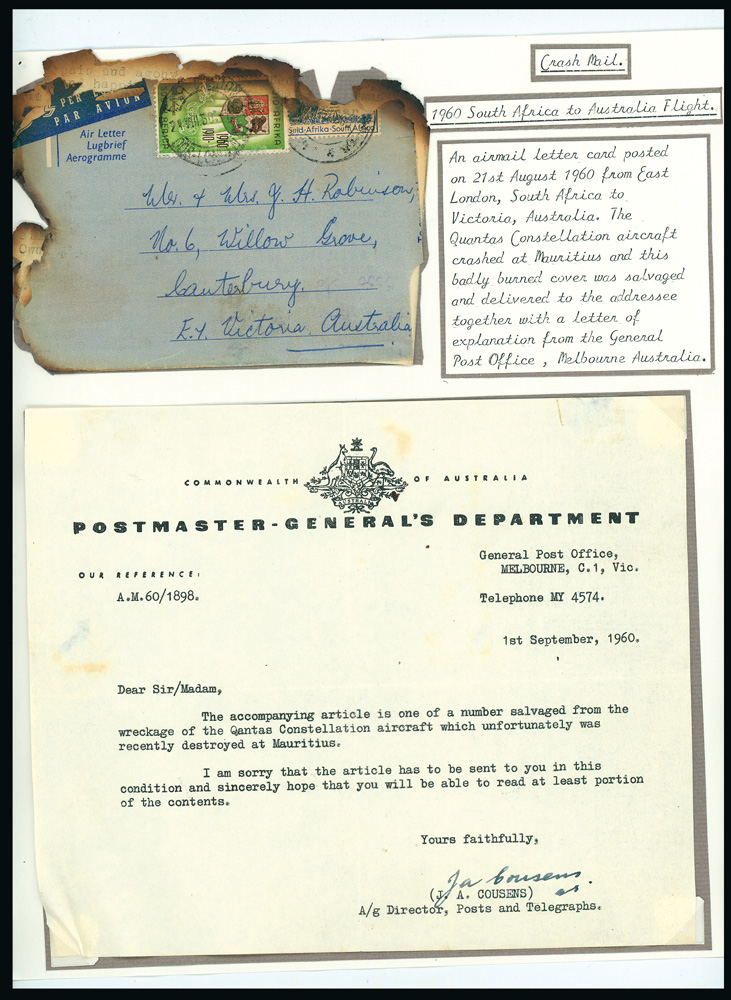 Crash Mail.
1960 South Africa to Australia Flight.
and
PER
PAR AVION
Air Letter
Lugbrief
Aerogramme
1910-1960
Suid-Afrika-South Africa
Mr. & Mrs. J. H. Robinson,
No. 6, Willow Grove,
Canterbury.
E.7. Victoria. Australia
Own
An airmail letter card posted
on 21st August 1960 from East
London, South Africa to
Victoria, Australia. The
Quantas Constellation aircraft
crashed at Mauritius and this
badly burned cover was salvaged
and delivered to the addressee
together with a letter of
explanation from the General
Post Office , Melbourne Australia.
COMMONWEALTH OF AUSTRALIA
POSTMASTER-GENERAL'S DEPARTMENT
General Post Office,
MELBOURNE, C.1, Vic.
OUR REFERENCE:
A.M.60/1898.
Telephone MY 4574.
1st September, 1960.
Dear Sir/Madam,
The accompanying article is one of a number salvaged from the
wreckage of the Qantas Constellation aircraft which unfortunately was
recently destroyed at Mauritius.
I am sorry that the article has to be sent to you in this
condition and sincerely hope that you will be able to read at least portion
of the contents.
Yours faithfully,
Ja Cousens.
(J. A. COUSENS)
A/g Director, Posts and Telegraphs.